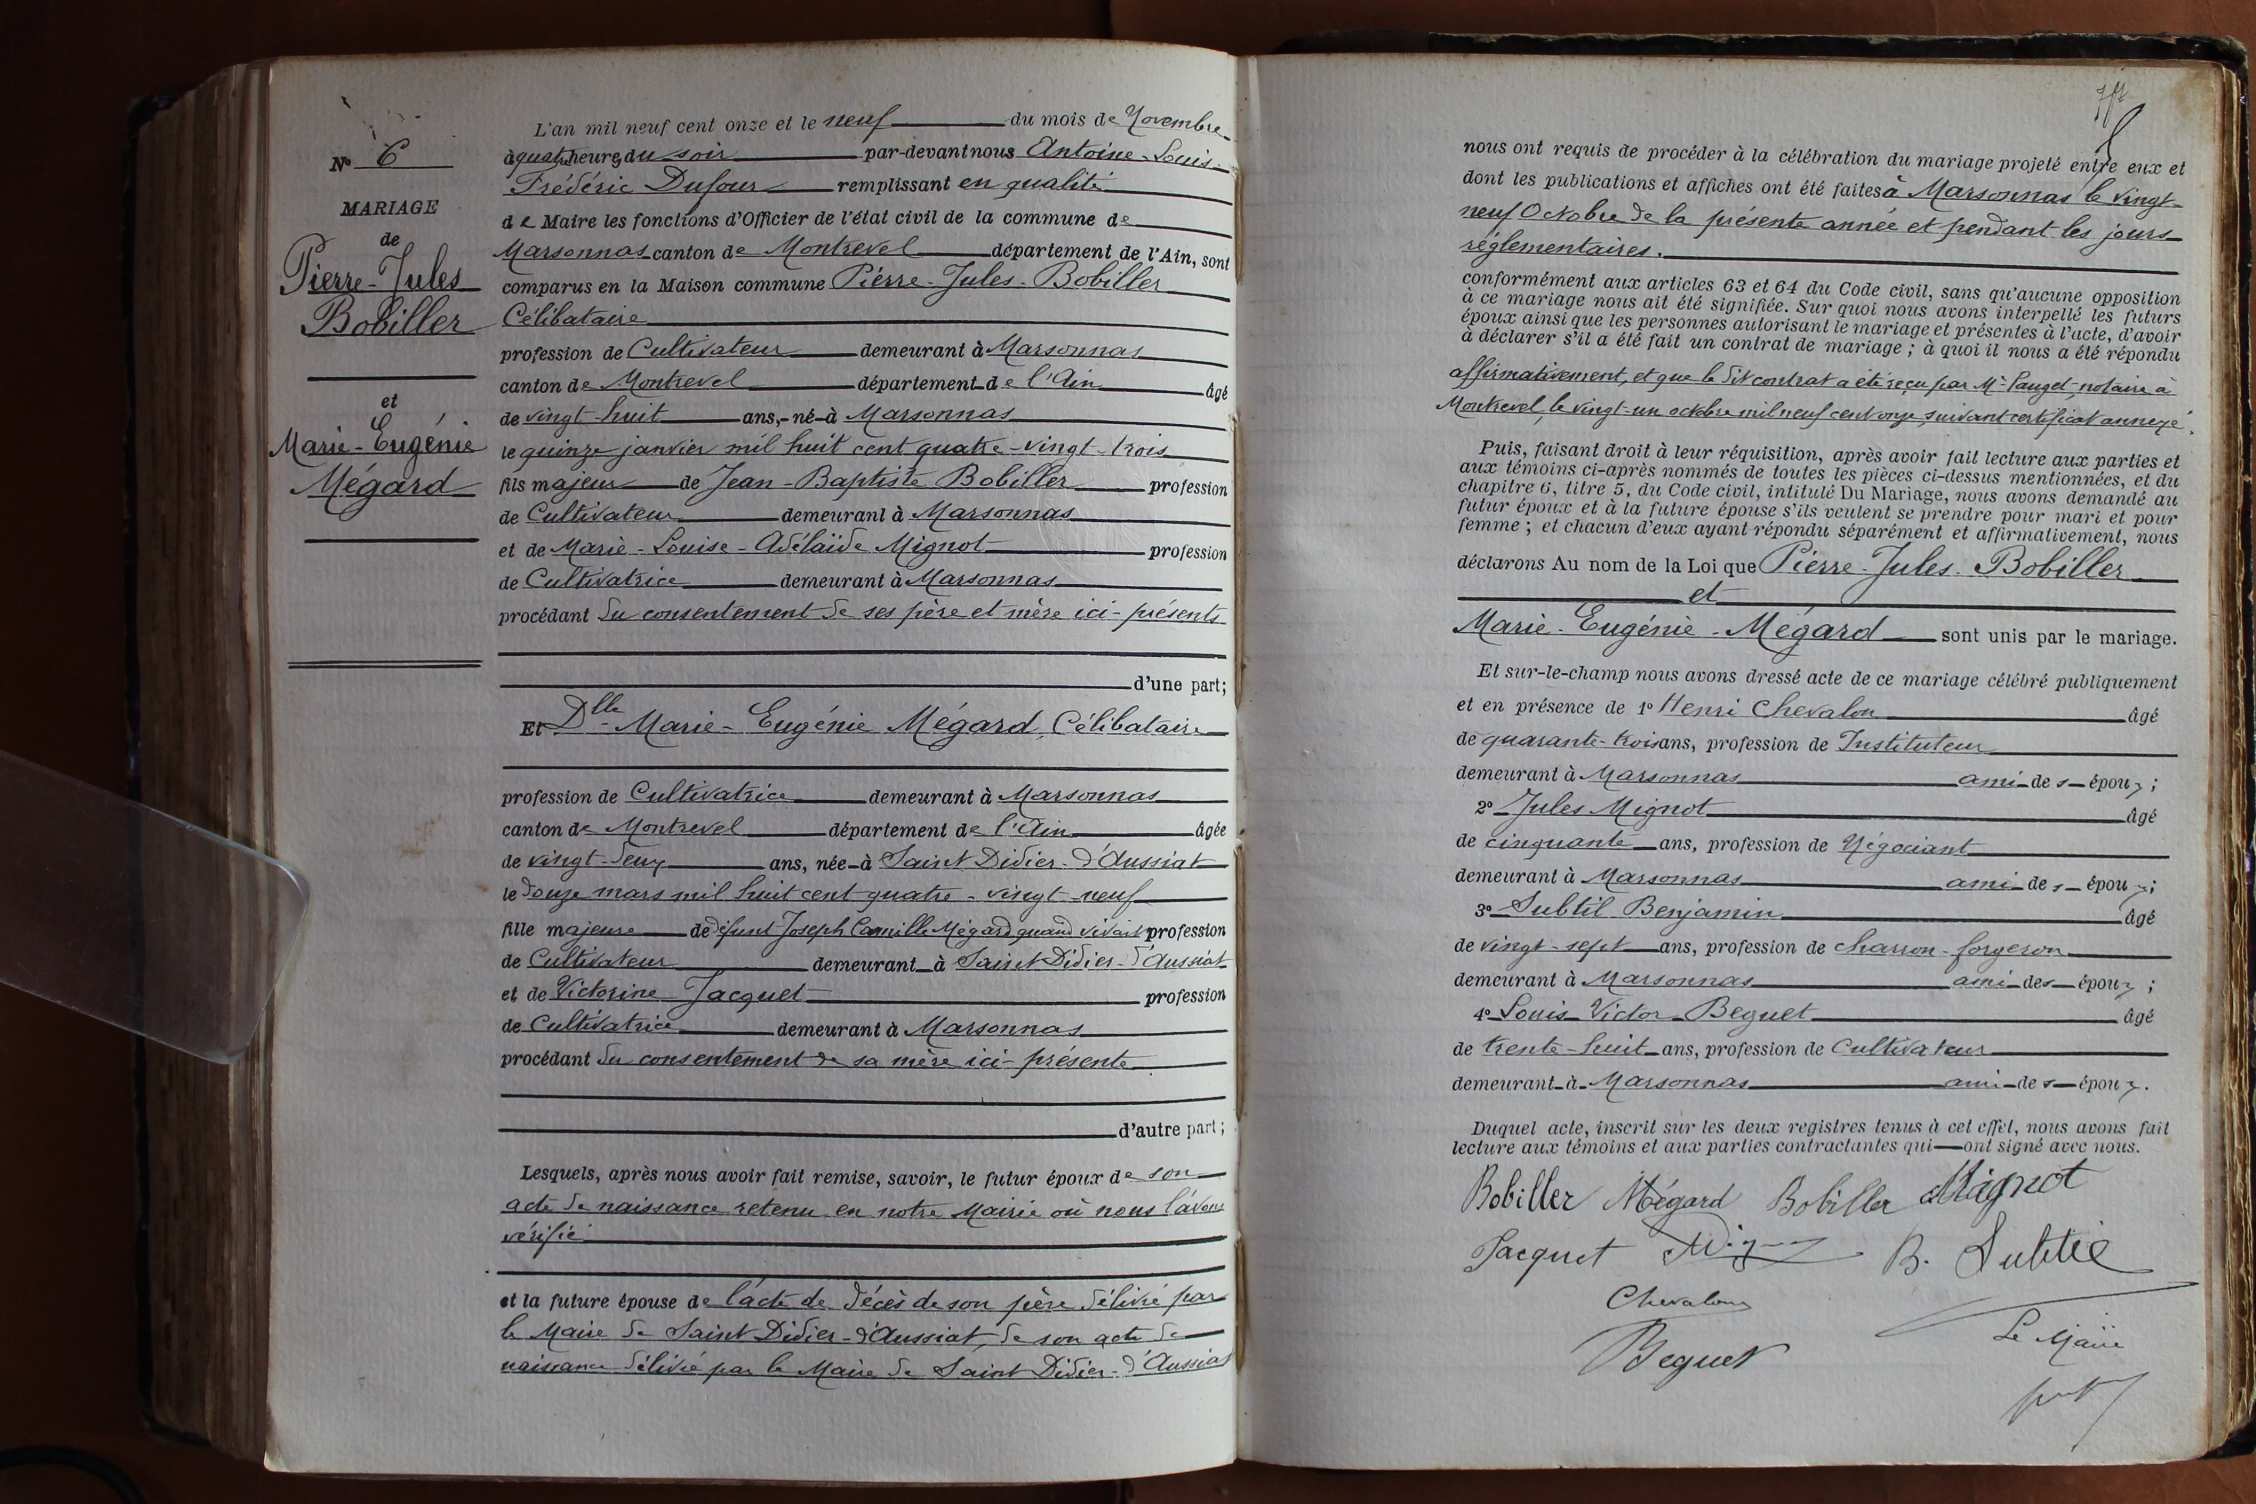 Nº 6
MARIAGE
de
Pierre-Jules
Bobiller
et
Marie-Eugénie
Mégard
L'an mil neuf cent onze et le neuf du mois de Novembre
à quatre heures du soir par-devant nous Antoine-Louis-
Frédéric Dufour remplissant en qualité
de Maire les fonctions d'Officier de l'état civil de la commune de
Marsonnas canton de Montrevel département de l'Ain, sont
comparus en la Maison commune Pierre-Jules-Bobiller
Célibataire
profession de Cultivateur demeurant à Marsonnas
canton de Montrevel département de l'Ain âgé
de vingt-huit ans, né à Marsonnas
le quinze janvier mil huit cent quatre-vingt-trois
fils majeur de Jean-Baptiste Bobiller profession
de Cultivateur demeurant à Marsonnas
et de Marie-Louise-Adélaïde Mignot profession
de Cultivatrice demeurant à Marsonnas
procédant du consentement de ses père et mère ici-présents
d'une part;
Et Dlle Marie-Eugénie Mégard, Célibataire
profession de Cultivatrice demeurant à Marsonnas
canton de Montrevel département de l'Ain âgée
de vingt-deux ans, née à Saint Didier-d'Aussiat
le douze mars mil huit cent quatre-vingt-neuf
fille majeure de défunt Joseph Camille Mégard quand vivait profession
de Cultivateur demeurant à Saint Didier-d'Aussiat
et de Victorine Jacquet profession
de Cultivatrice demeurant à Marsonnas
procédant du consentement de sa mère ici-présente
d'autre part;
Lesquels, après nous avoir fait remise, savoir, le futur époux de son
acte de naissance retenu en notre Mairie où nous l'avons
vérifié
et la future épouse de l'acte de décès de son père délivré par
le Maire de Saint Didier-d'Aussiat, de son acte de
naissance délivré par le Maire de Saint Didier-d'Aussiat
nous ont requis de procéder à la célébration du mariage projeté entre eux et
dont les publications et affiches ont été faites à Marsonnas le vingt-
neuf Octobre de la présente année et pendant les jours
réglementaires.
conformément aux articles 63 et 64 du Code civil, sans qu'aucune opposition
à ce mariage nous ait été signifiée. Sur quoi nous avons interpellé les futurs
époux ainsi que les personnes autorisant le mariage et présentes à l'acte, d'avoir
à déclarer s'il a été fait un contrat de mariage; à quoi il nous a été répondu
affirmativement, et que le dit contrat a été reçu par Me Pauget, notaire à
Montrevel, le vingt-un octobre mil neuf cent onze, suivant certificat annexé.
Puis, faisant droit à leur réquisition, après avoir fait lecture aux parties et
aux témoins ci-après nommés de toutes les pièces ci-dessus mentionnées, et du
chapitre 6, titre 5, du Code civil, intitulé Du Mariage, nous avons demandé au
futur époux et à la future épouse s'ils veulent se prendre pour mari et pour
femme; et chacun d'eux ayant répondu séparément et affirmativement, nous
déclarons Au nom de la Loi que Pierre-Jules-Bobiller
et
Marie-Eugénie-Mégard sont unis par le mariage.
Et sur-le-champ nous avons dressé acte de ce mariage célébré publiquement
et en présence de 1º Henri Chevalon âgé
de quarante-trois ans, profession de Instituteur
demeurant à Marsonnas ami des époux;
2º Jules Mignot âgé
de cinquante ans, profession de Négociant
demeurant à Marsonnas ami des époux;
3º Subtil Benjamin âgé
de vingt-sept ans, profession de charron-forgeron
demeurant à Marsonnas ami des époux;
4º Louis Victor Beguet âgé
de trente-huit ans, profession de Cultivateur
demeurant à Marsonnas ami des époux.
Duquel acte, inscrit sur les deux registres tenus à cet effet, nous avons fait
lecture aux témoins et aux parties contractantes qui ont signé avec nous.
Bobiller Mégard Bobiller Mignot
Jacquet B. Subtil
Chevalon
Beguet Le Maire